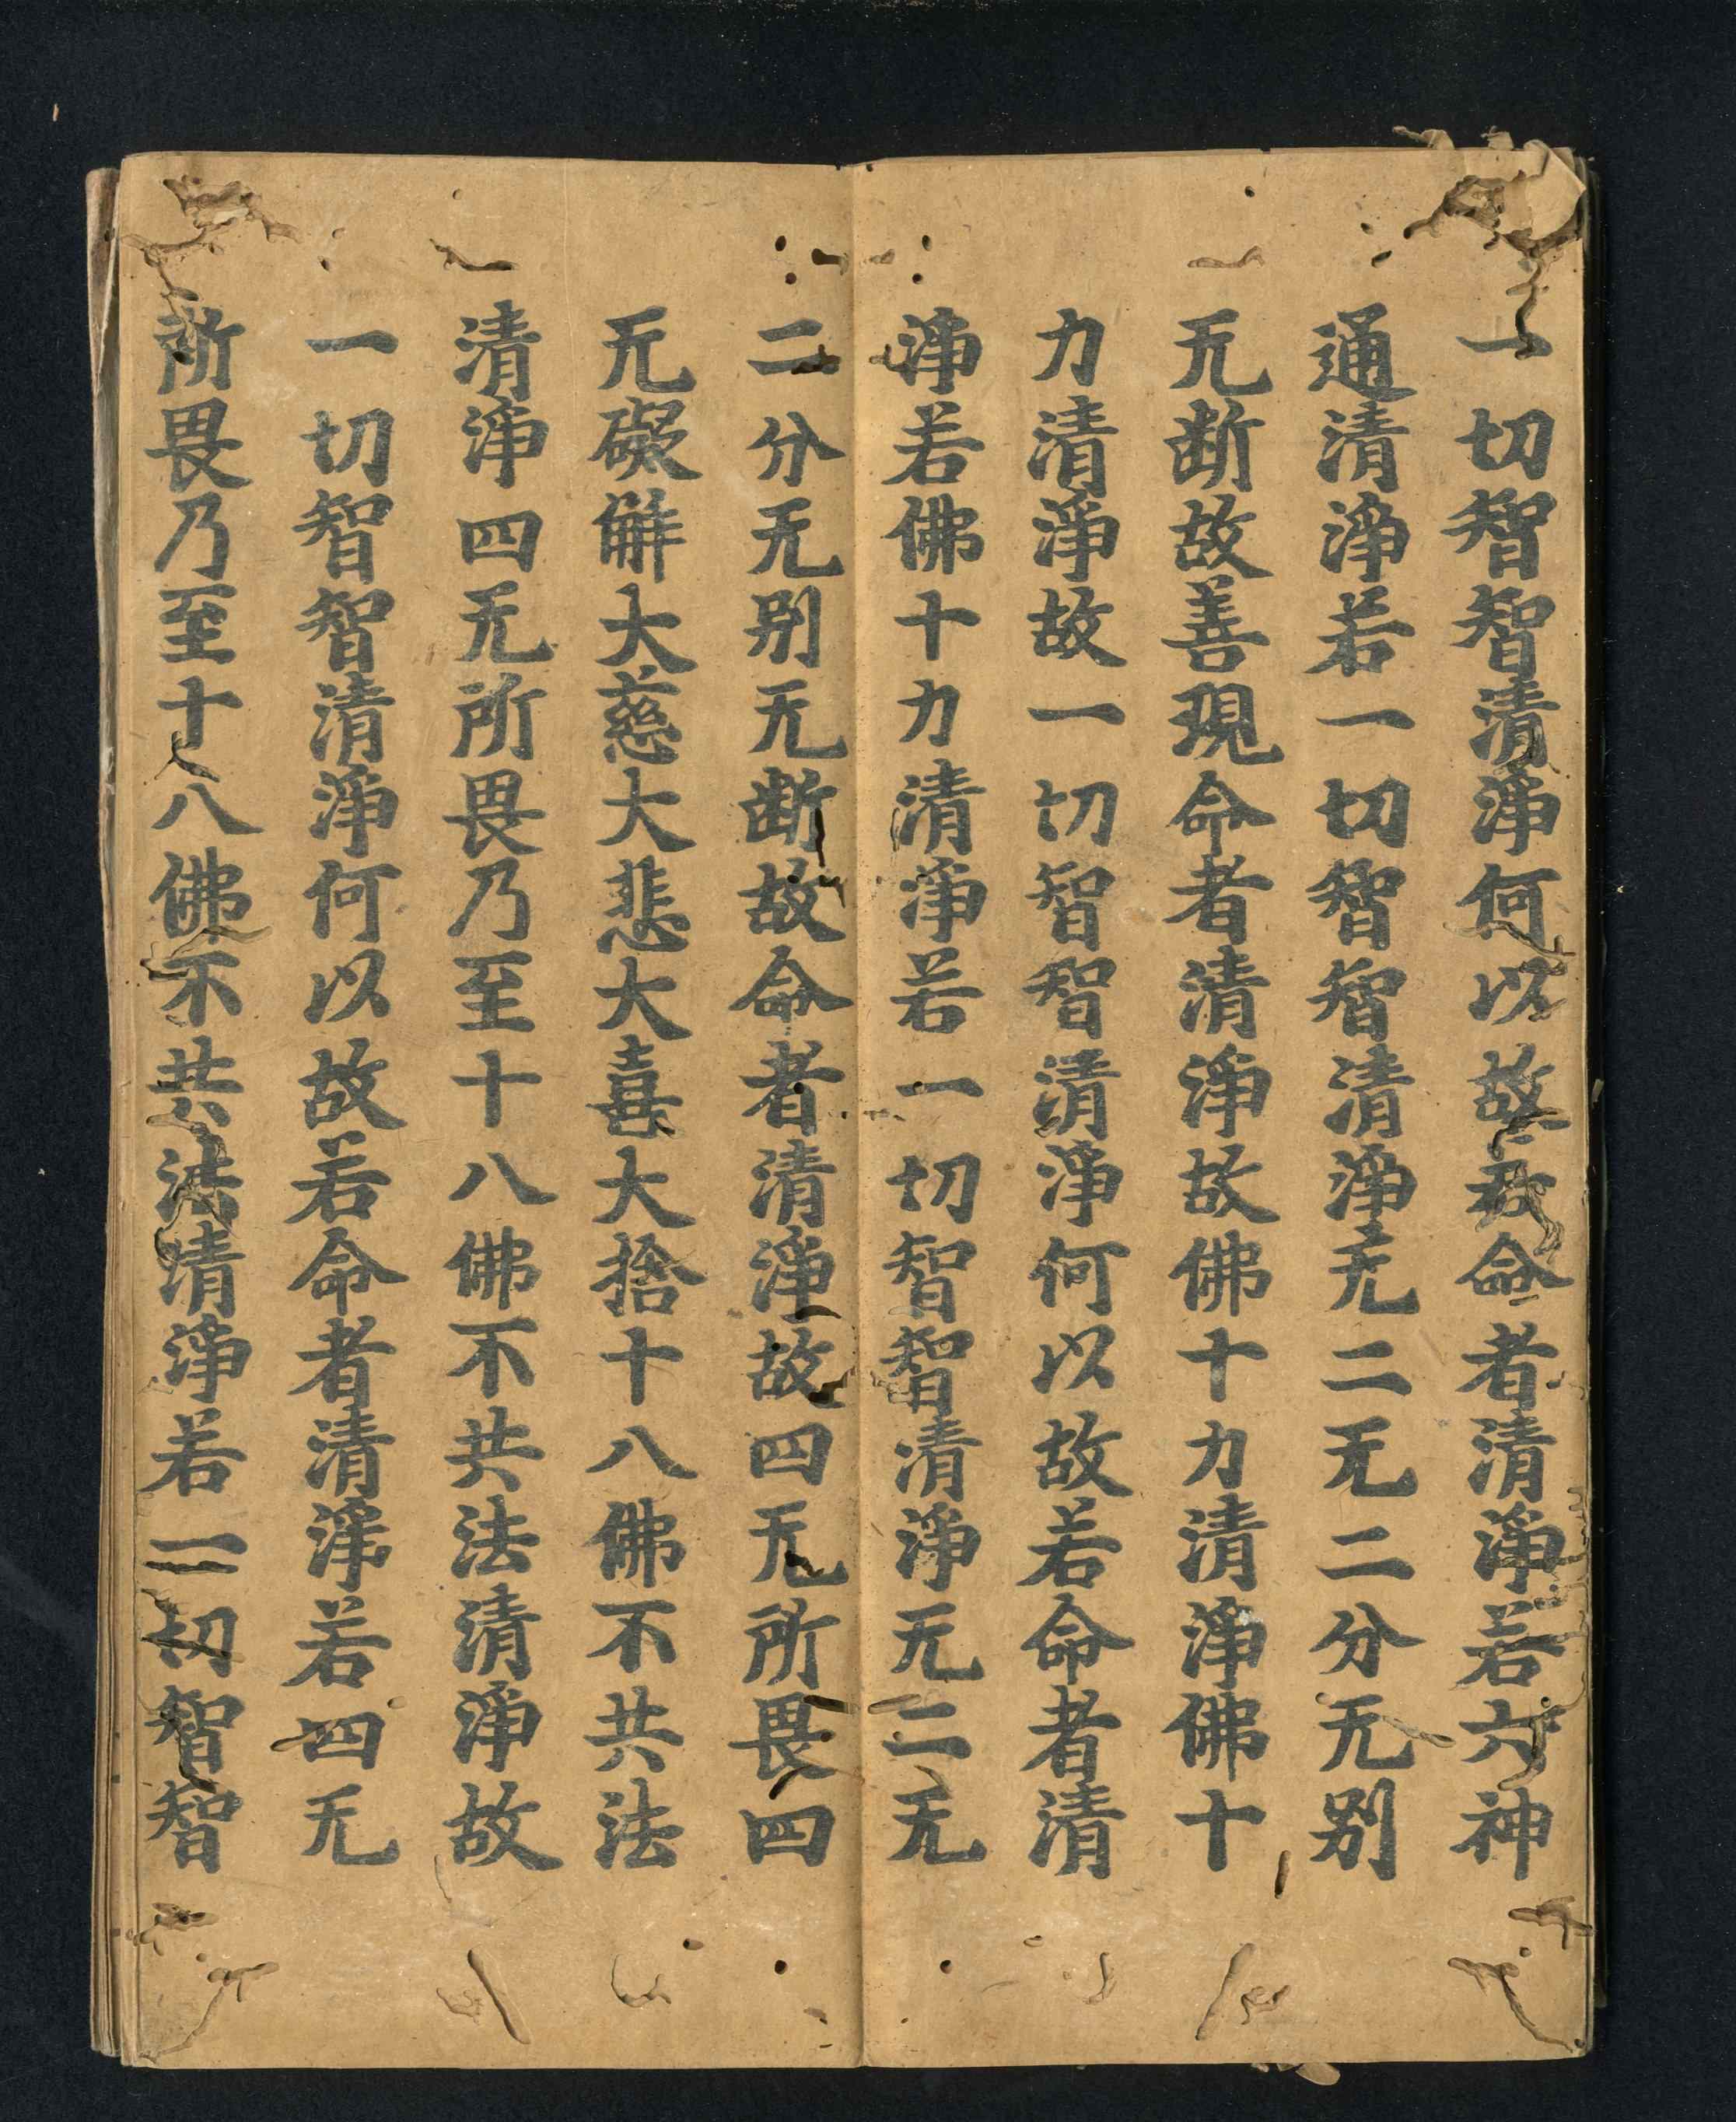 一切智智清淨何以故若命者清淨若六神
通清淨若一切智智清淨无二无二分无别
无断故善現命者清淨故佛十力清淨佛十
力清淨故一切智智清淨何以故若命者清
淨若佛十力清淨若一切智智清淨无二无
二分无别无断故命者清淨故四无所畏四
无礙解大慈大悲大喜大捨十八佛不共法
清淨四无所畏乃至十八佛不共法清淨故
一切智智清淨何以故若命者清淨若四无
所畏乃至十八佛不共法清淨若一切智智